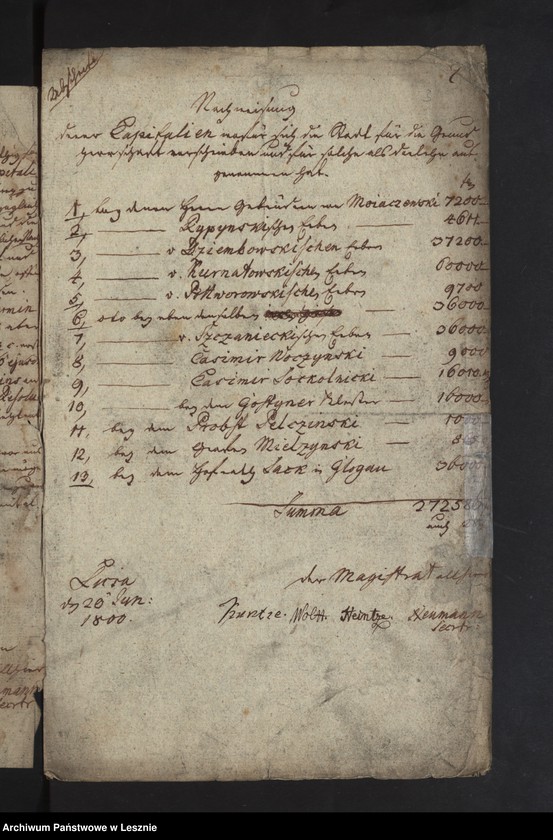 Abschrift
Nachweisung
derer Kapitalien wofür sich die Stadt für die Grund
herrschaft verschrieben und für solche als Darlehn auf
genommen hat.
1, bey denen Herrn Gebrüdern von Moiaczewski 7200
2, Rypynskische Erben 4611
3, v. Dziembowskischen Erben 37200
4, v. Kurnatowskische Erben 60000
5, v. Potworowskische Erben 9700
6, dito bey eben denselben 36000
7, v. Szczanieckischen Erben 36000
8, Casimir Noczynski 9000
9, Casimir Sockolnicki 16000
10, bey dem Gostyner Kloster 16000
11, bey dem Probst Pelczinski 10
12, bey dem Grafen Mielzynski 8
13, bey dem Hofrath Sack in Glogau 36000
Summa 2725
auch
Lissa
den 20 Jun:
1800.
der Magistrat allhier
Kuntze. Wolff. Heintze. Neumann
Secrtr:
Archiwum Państwowe w Lesznie